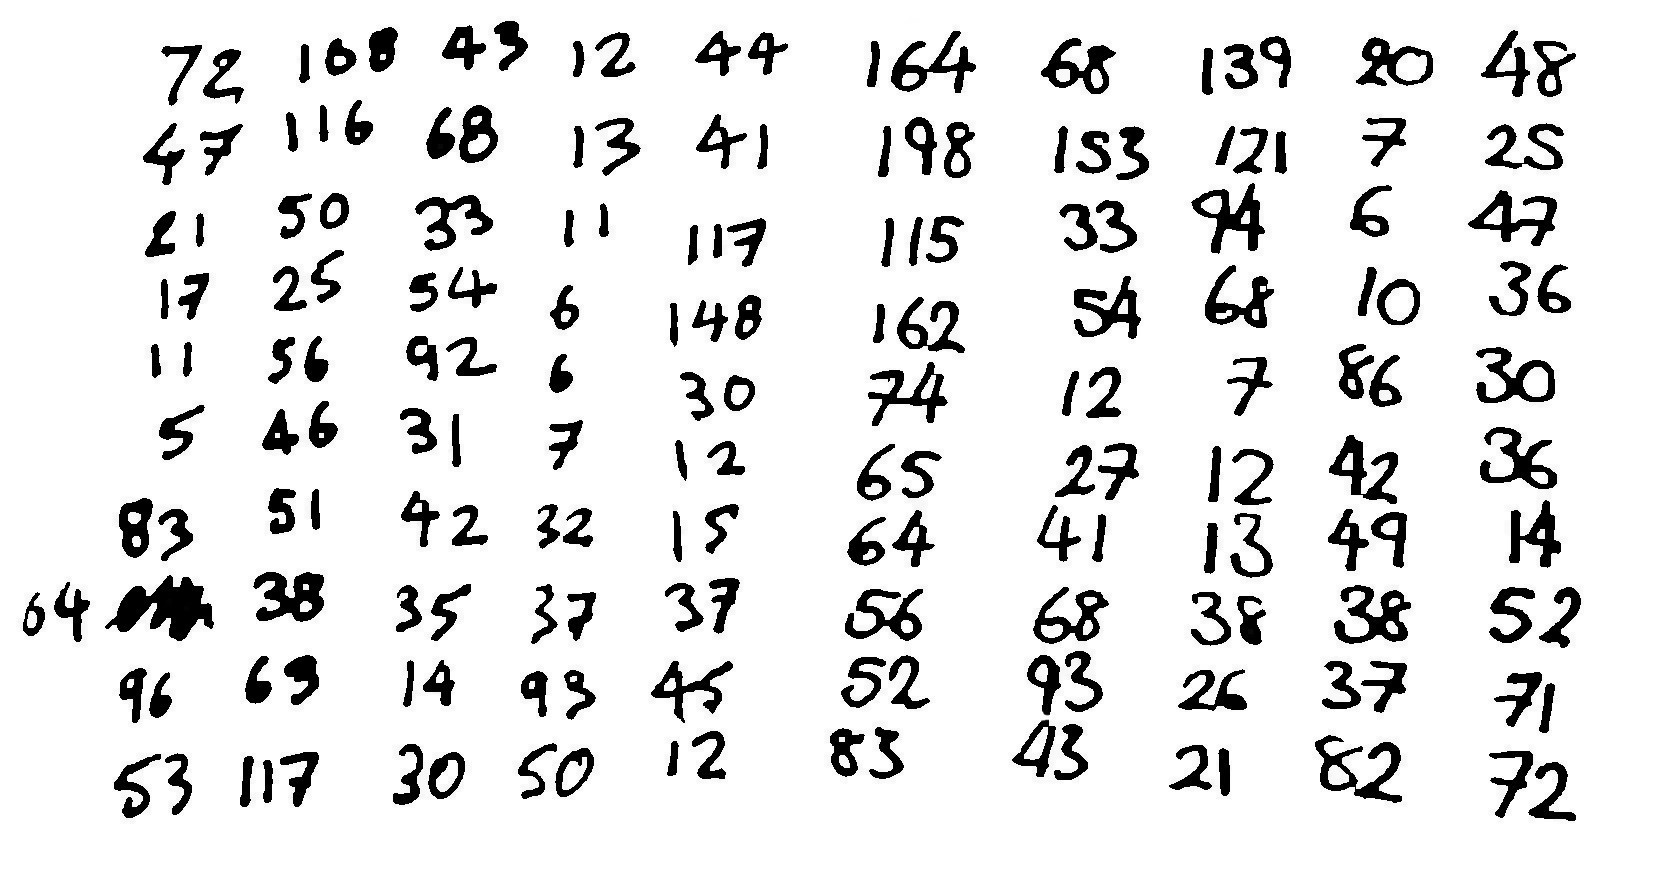 72 168 43 12 44 164 68 139 20 48
47 116 68 13 41 198 153 121 7 25
21 50 33 11 117 115 33 94 6 47
17 25 54 6 148 162 54 68 10 36
11 56 92 6 30 74 12 7 86 30
5 46 31 7 12 65 27 12 42 36
83 51 42 32 15 64 41 13 49 14
64 38 35 37 37 56 68 38 38 52
96 63 14 93 45 52 93 26 37 71
53 117 30 50 12 83 43 21 82 72